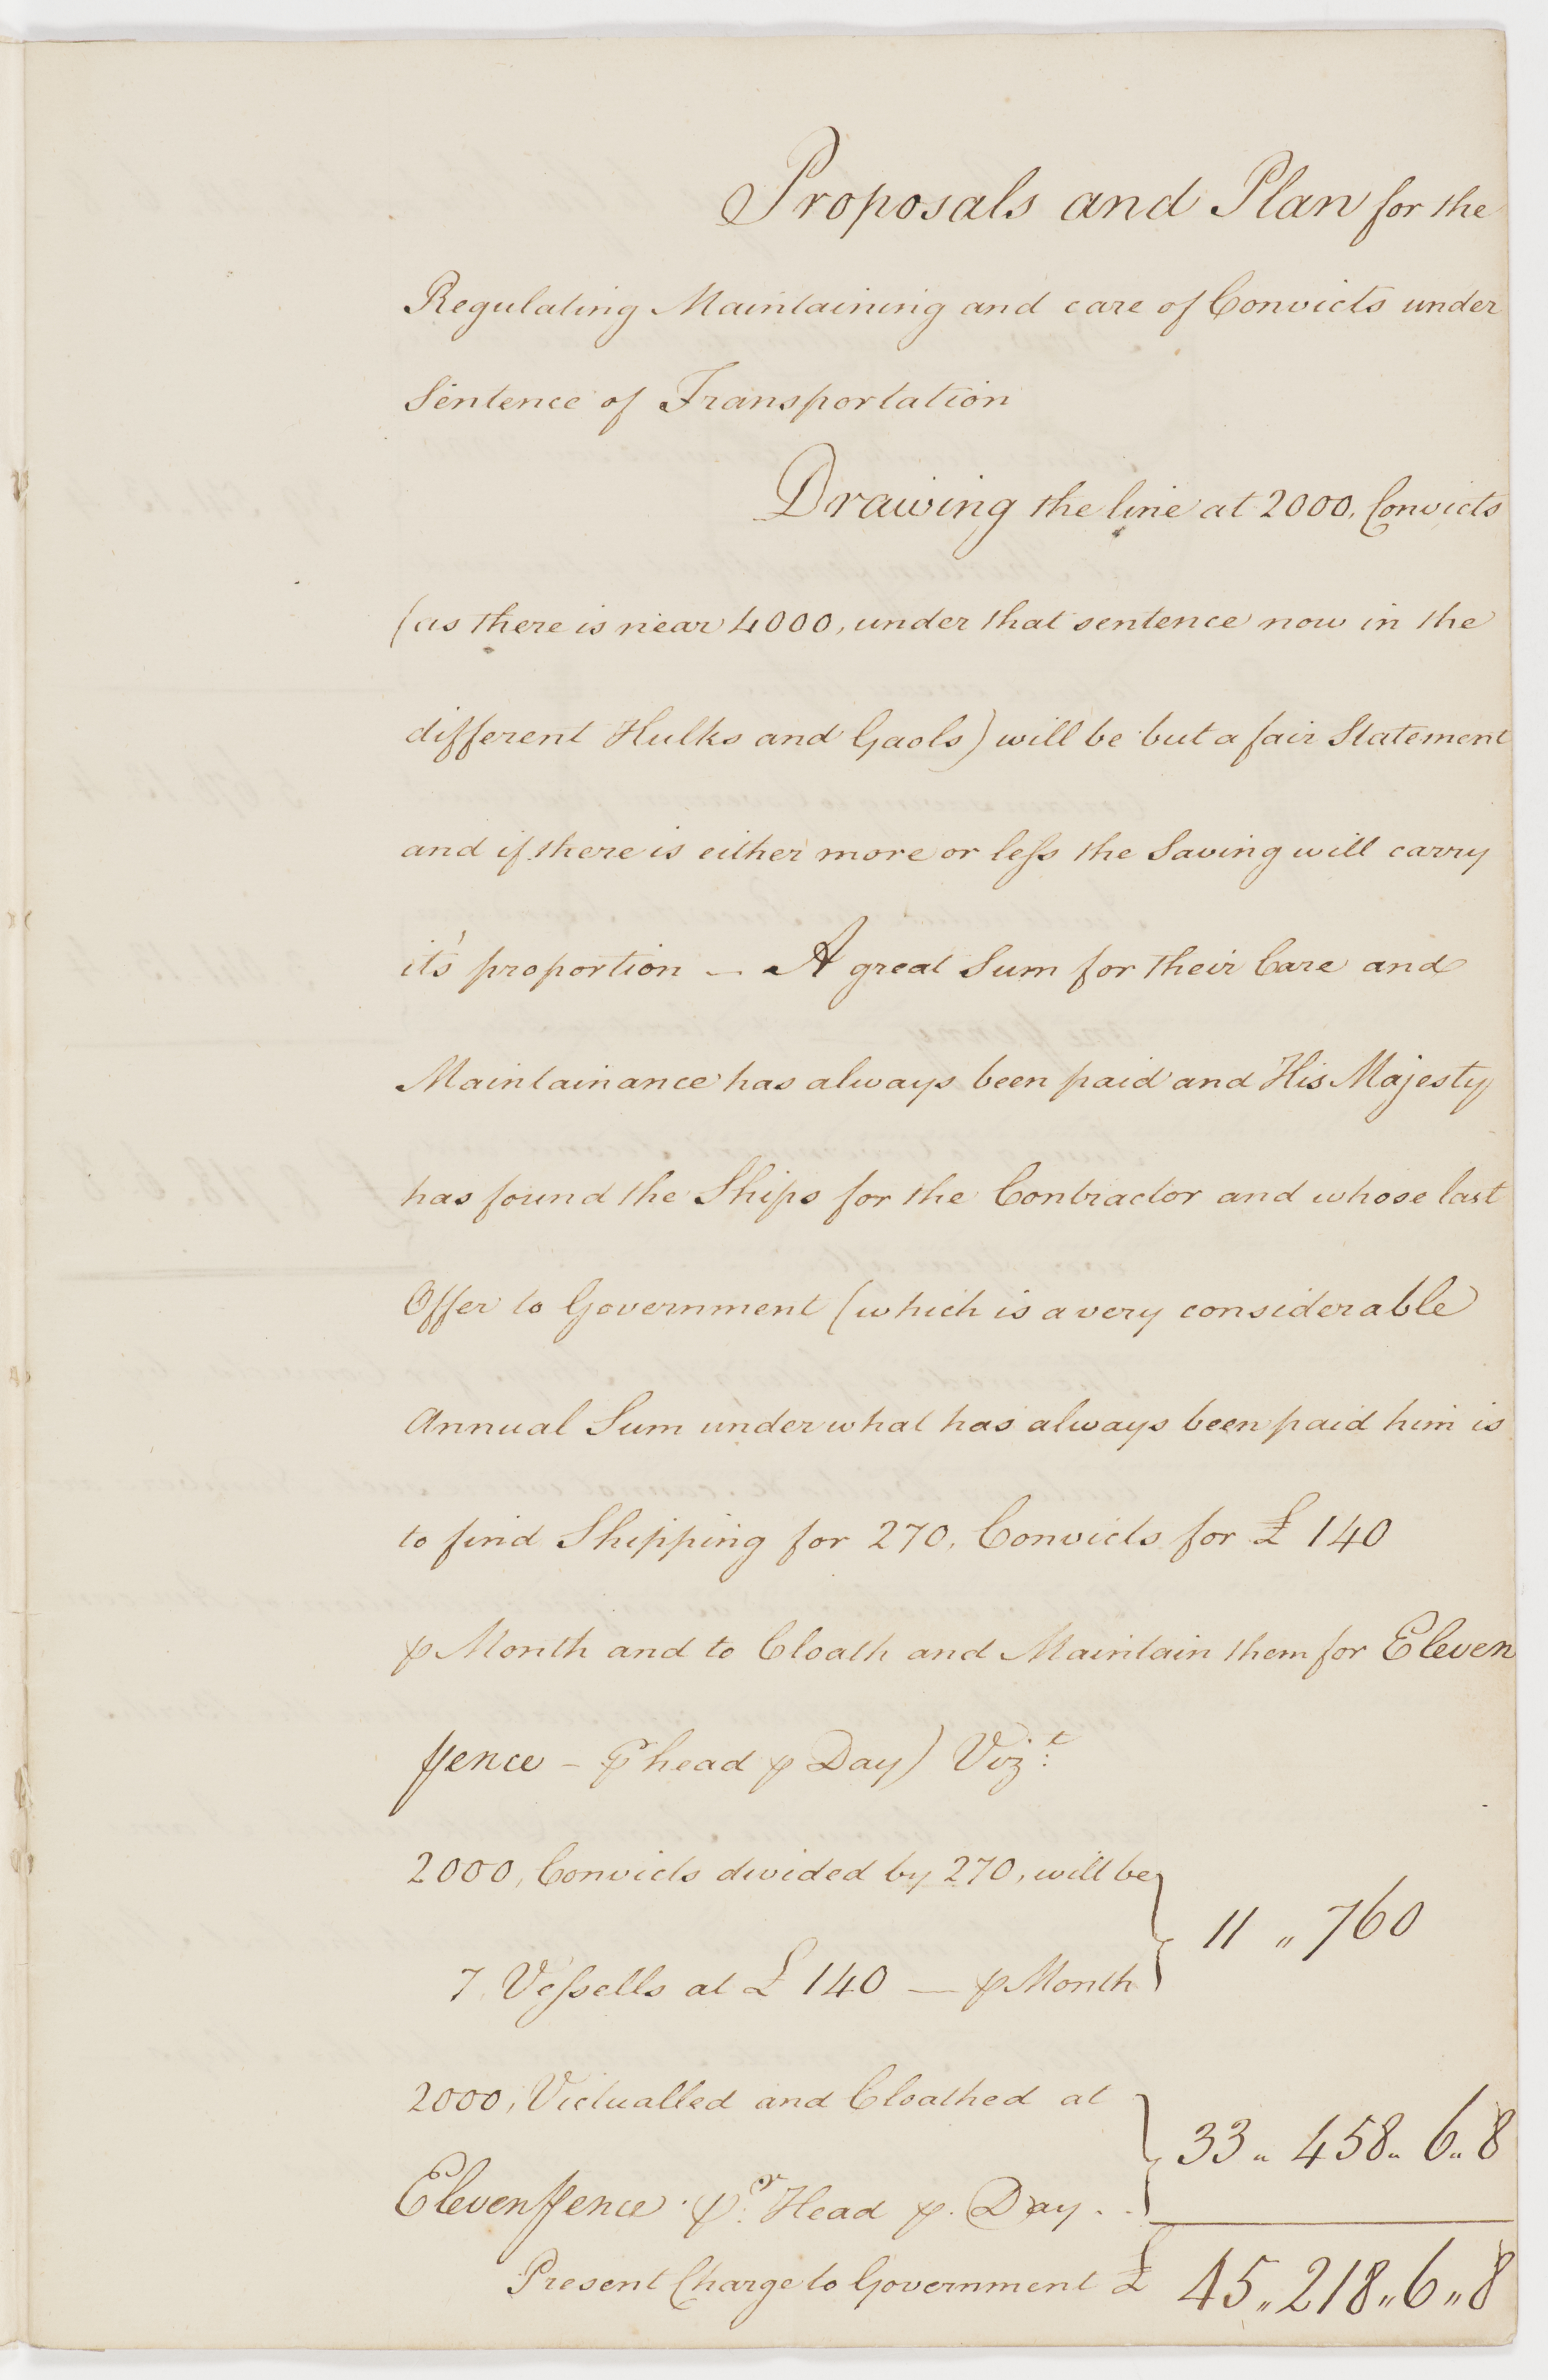 Proposals and Plan for the
Regulating Maintaining and care of Convicts under
Sentence of Transportation
Drawing the line at 2000, Convicts
(as there is near 4000, under that sentence now in the
different Hulks and Gaols) will be but a fair Statement
and if there is either more or less the Saving will carry
it's proportion — A great Sum for their Care and
Maintainance has always been paid and His Majesty
has found the Ships for the Contractor and whose last
Offer to Government (which is a very considerable
Annual Sum under what has always been paid him is
to find Shipping for 270, Convicts for £ 140
⅌ Month and to Cloath and Maintain them for Eleven
pence – ⅌ head ⅌ Day) Vizt:
2000, Convicts divided by 270, will be
7 Vessells at £ 140 — ⅌ Month } 11 „ 760
2000, Victualled and Cloathed at
Eleven pence ⅌r: Head ⅌. Day . . } 33 „ 458 „ 6 „ 8
Present Charge to Government £ 45 „ 218 „ 6 „ 8